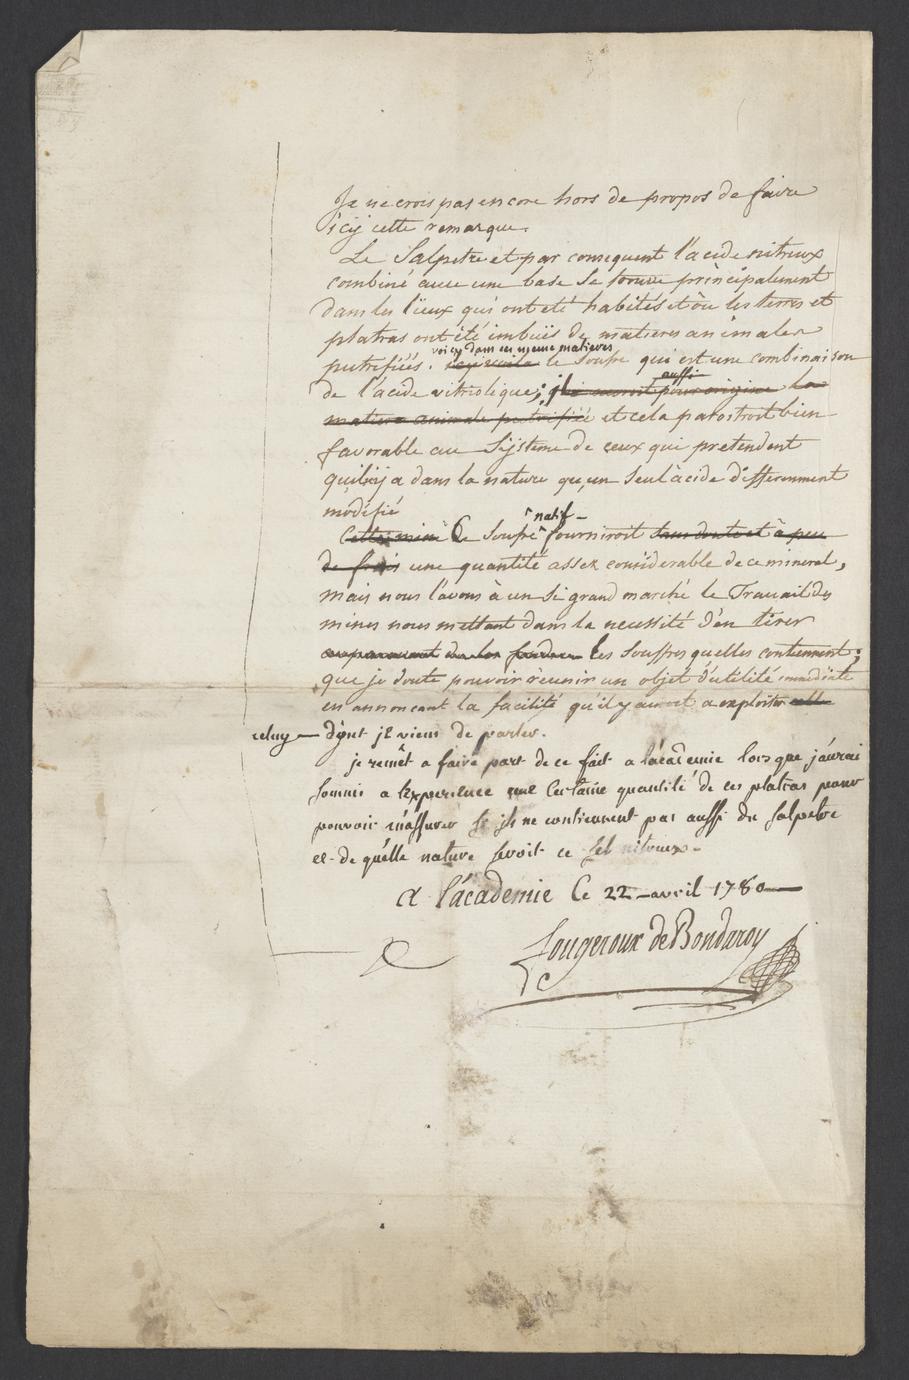 Je ne crois pas encore hors de propos de faire
icy cette remarque.
Le Salpetre et par consequent l'acide nitreux
combiné avec une base se trouve principalement
dans les lieux qui ont eté habités et ou les terres et
platras ont été imbuës de matieres animales
voicy dans ces meme matieres
putrefiées. le Soufre qui est une combinaison
aussi
de l'acide vitriolique; il auroit pour origine la
matiere animale putrifiée et cela paroitroit bien
favorable au Sÿsteme de ceux qui pretendent
qu'il ÿ a dans la nature qu'un seul acide differemment
modifié
natif
Cette mine Ce Soufre fourniroit sans doute et à peu
de frais une quantité assez considerable de ce mineral,
mais nous l'avons à un si grand marché le Travail des
mines nous mettant dans la necessité d'en tirer
les Souffres quelles contiennent;
que je doute pouvoir réunir un objet d'utilité immédiate
en annoncant la facilité qu'il y auroit a exploiter celle
celuy dont je viens de parler.
je remêt a faire part de ce fait a l'académie lorsque j'aurai
soumis a l'experience une certaine quantité de ces platras pour
pouvoir m'assurer si ils ne contiennent pas aussi du salpetre
et de quelle nature seroit ce sel nitreux.
A l'académie Ce 22 avril 1780
Fougeroux de Bondaroy